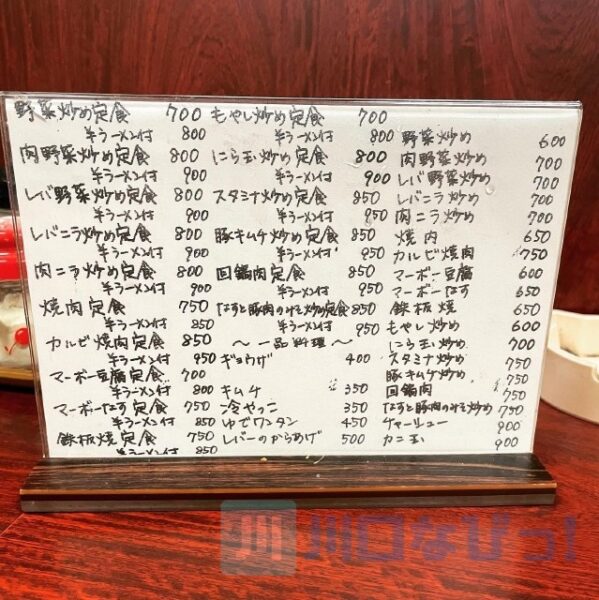 野菜炒め定食 700
半ラーメン付 800
肉野菜炒め定食 800
半ラーメン付 900
レバ野菜炒め定食 800
半ラーメン付 900
レバニラ炒め定食 800
半ラーメン付 900
肉ニラ炒め定食 800
半ラーメン付 900
焼肉定食 750
半ラーメン付 850
カルビ焼肉定食 850
半ラーメン付 950
マーボー豆腐定食 700
半ラーメン付 800
マーボーなす定食 750
半ラーメン付 850
鉄板焼定食 750
半ラーメン付 850
もやし炒め定食 700
半ラーメン付 800
にら玉炒め定食 800
半ラーメン付 900
スタミナ炒め定食 850
半ラーメン付 950
豚キムチ炒め定食 850
半ラーメン付 950
回鍋肉定食 850
半ラーメン付 950
なすと豚肉のみそ炒め定食 850
半ラーメン付 950
〜一品料理〜
ギョウザ 400
キムチ 350
冷やっこ 350
ゆでワンタン 450
レバーのからあげ 500
野菜炒め 600
肉野菜炒め 700
レバ野菜炒め 700
レバニラ炒め 700
肉ニラ炒め 700
焼肉 650
カルビ焼肉 750
マーボー豆腐 600
マーボーなす 650
鉄板焼 650
もやし炒め 600
にら玉炒め 700
スタミナ炒め 750
豚キムチ炒め 750
回鍋肉 750
なすと豚肉のみそ炒め 750
チャーシュー 900
カニ玉 900
川口なびっ!